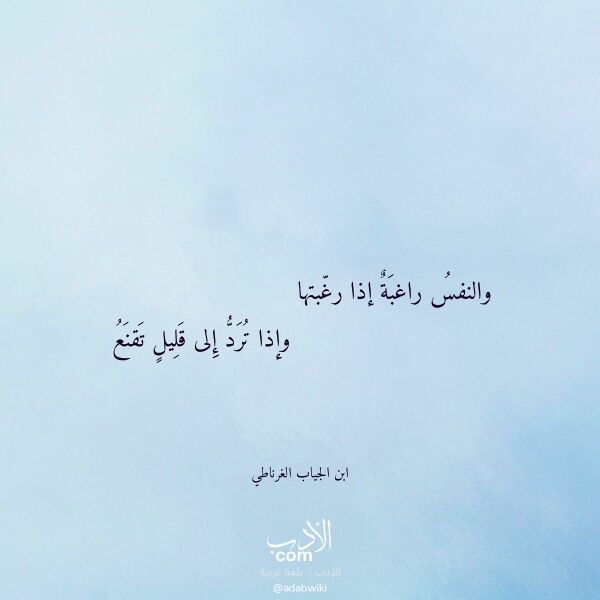 والنفسُ راغبَةٌ إذا رغّبتها
وإذا تُرَدُّ إِلى قَلِيلٍ تَقنَعُ
ابن الجياب الغرناطي
الأدب
com
الأدب .. بلغة عربية
@adabwiki